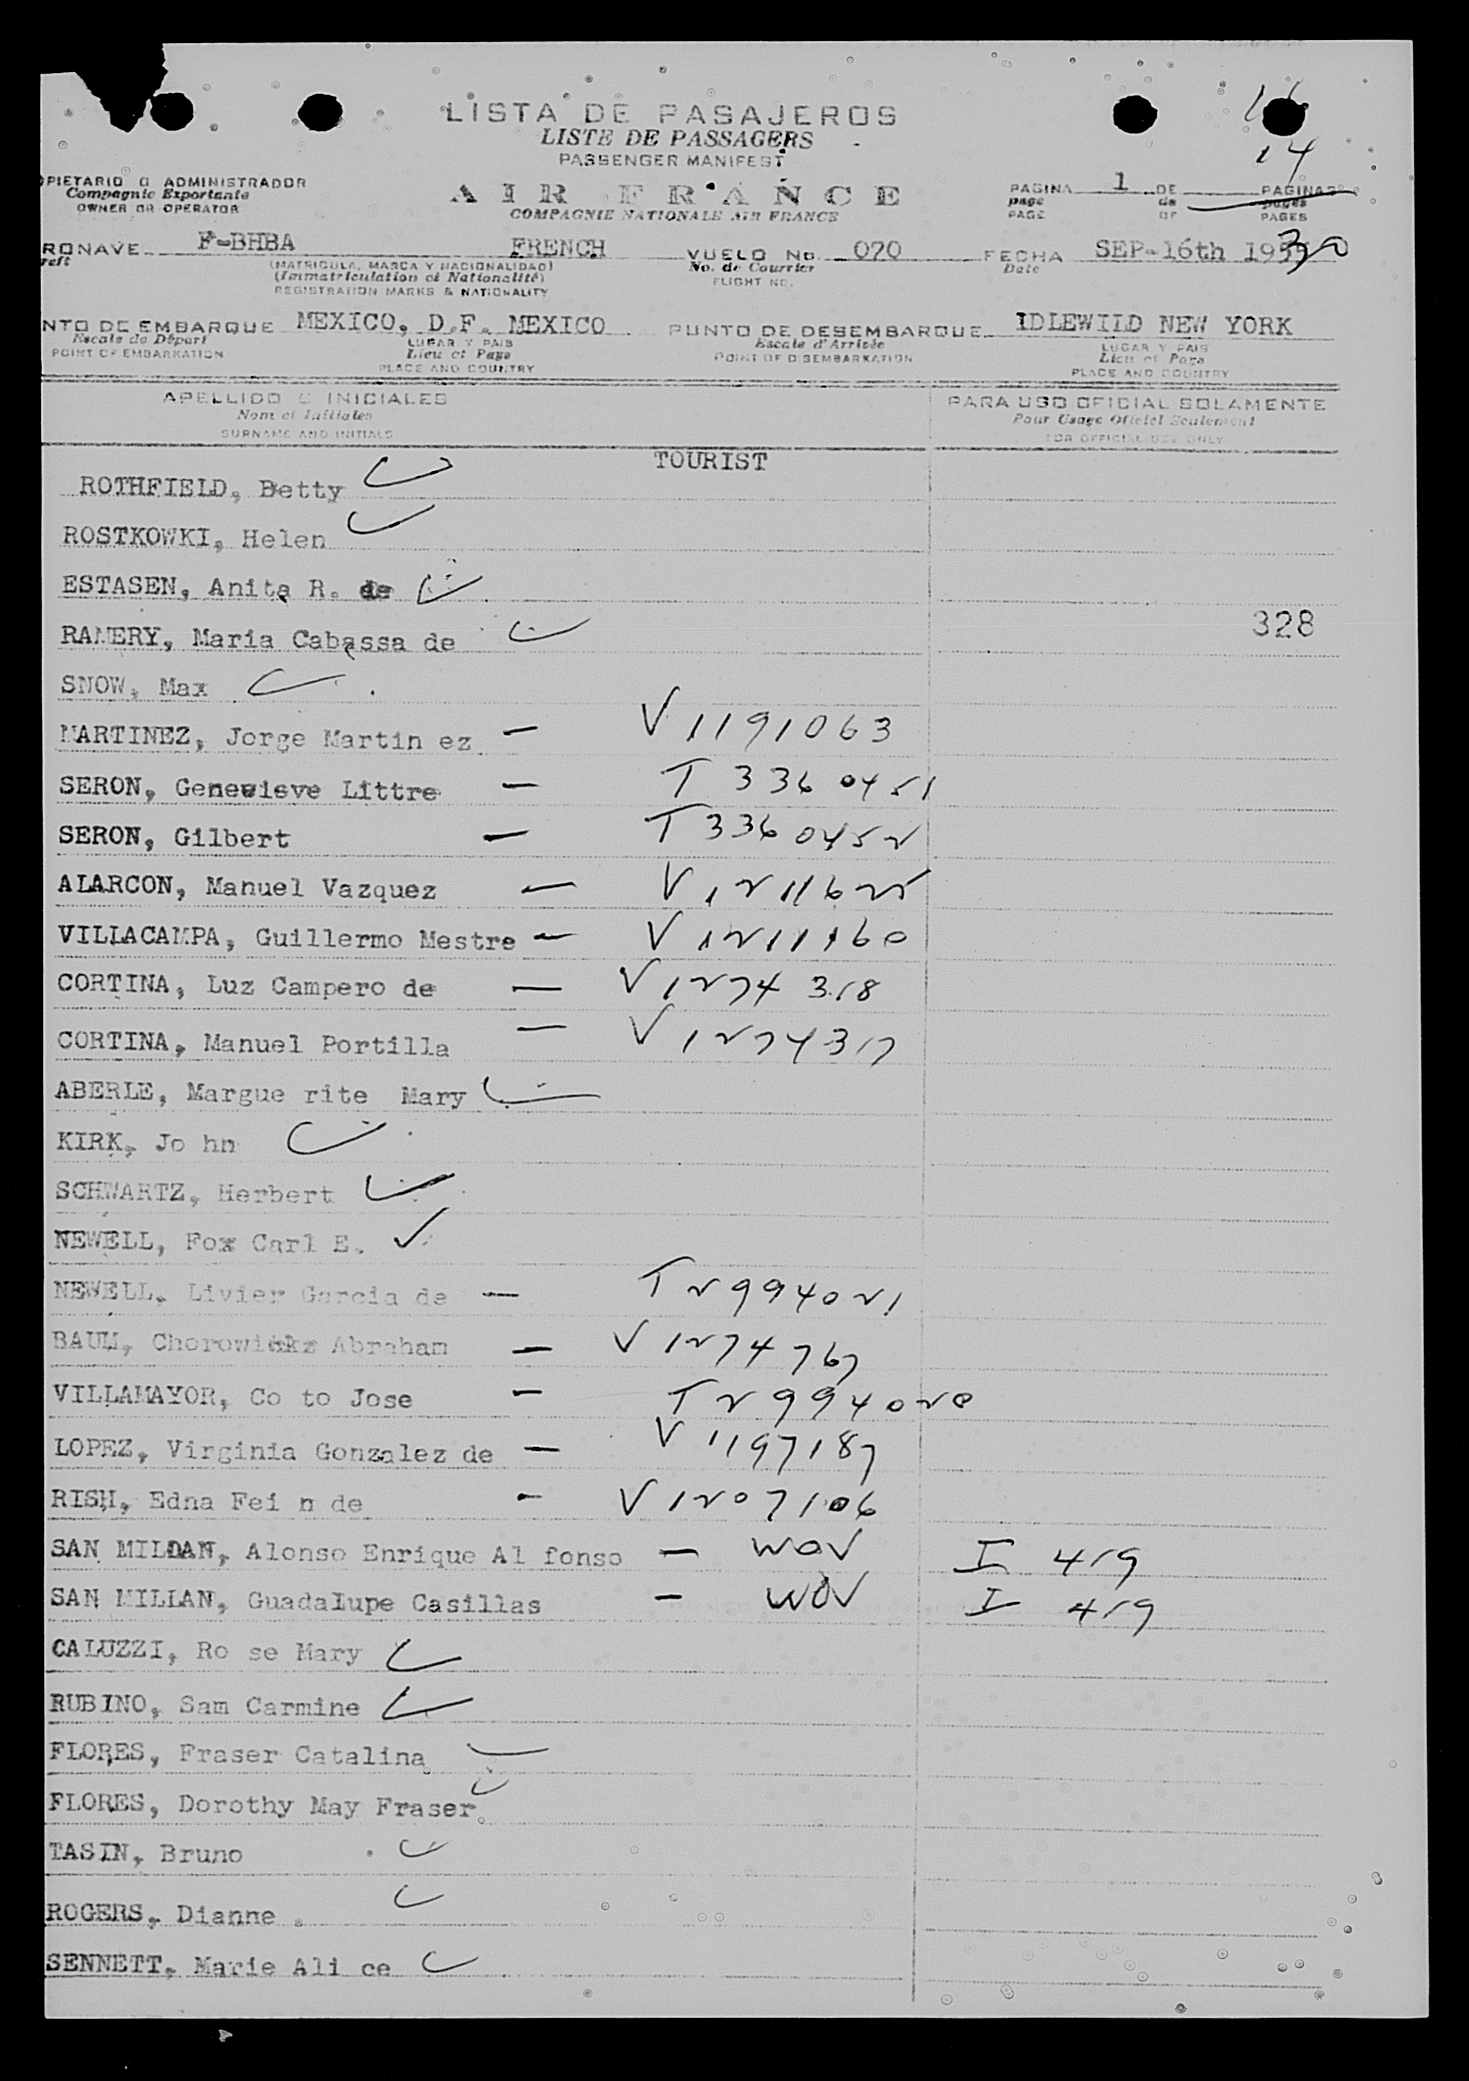 LISTA DE PASAJEROS
LISTE DE PASSAGERS
PASSENGER MANIFEST
16
14
OPIETARIO O ADMINISTRADOR
Compagnie Exportante
OWNER OR OPERATOR
AIR FRANCE
COMPAGNIE NATIONALE AIR FRANCE
PAGINA 1 DE PAGINAS
page de pages
PAGE OF PAGES
RONAVE F-BHBA FRENCH VUELO No. 070 FECHA SEP-16th 1955
reft (MATRICULA, MARCA Y NACIONALIDAD) No. de Courrier Date
(Immatriculation et Nationalité) FLIGHT NO.
REGISTRATION MARKS & NATIONALITY
NTO DE EMBARQUE MEXICO, D.F. MEXICO PUNTO DE DESEMBARQUE IDLEWILD NEW YORK
Escale de Départ LUGAR Y PAIS Escale d'Arrivée LUGAR Y PAIS
POINT OF EMBARKATION Lieu et Pays POINT OF DISEMBARKATION Lieu et Pays
PLACE AND COUNTRY PLACE AND COUNTRY
APELLIDO E INICIALES PARA USO OFICIAL SOLAMENTE
Nom et Initiales Pour Usage Officiel Seulement
SURNAME AND INITIALS FOR OFFICIAL USE ONLY
TOURIST
ROTHFIELD, Betty
ROSTKOWKI, Helen
ESTASEN, Anita R. de
RAMERY, Maria Cabassa de 328
SNOW, Max
MARTINEZ, Jorge Martin ez - V1191063
SERON, Genevieve Littre - T 3360451
SERON, Gilbert - T3360452
ALARCON, Manuel Vazquez - V1211625
VILLACAMPA, Guillermo Mestre - V1211160
CORTINA, Luz Campero de - V1274318
CORTINA, Manuel Portilla - V1274317
ABERLE, Margue rite Mary
KIRK, Jo hn
SCHWARTZ, Herbert
NEWELL, Fox Carl E. ✓
NEWELL, Livier Garcia de - T2994021
BAUM, Abraham - V1274767
VILLAMAYOR, Co to Jose - T2994020
LOPEZ, Virginia Gonzalez de - V1197187
RISH, Edna Fei n de - V1207106
SAN MILLAN, Alonso Enrique Al fonso - WOV I 419
SAN MILLAN, Guadalupe Casillas - WOV I 419
CALUZZI, Ro se Mary
RUBINO, Sam Carmine
FLORES, Fraser Catalina
FLORES, Dorothy May Fraser
TASIN, Bruno
ROGERS, Dianne
SENNETT, Marie Ali ce